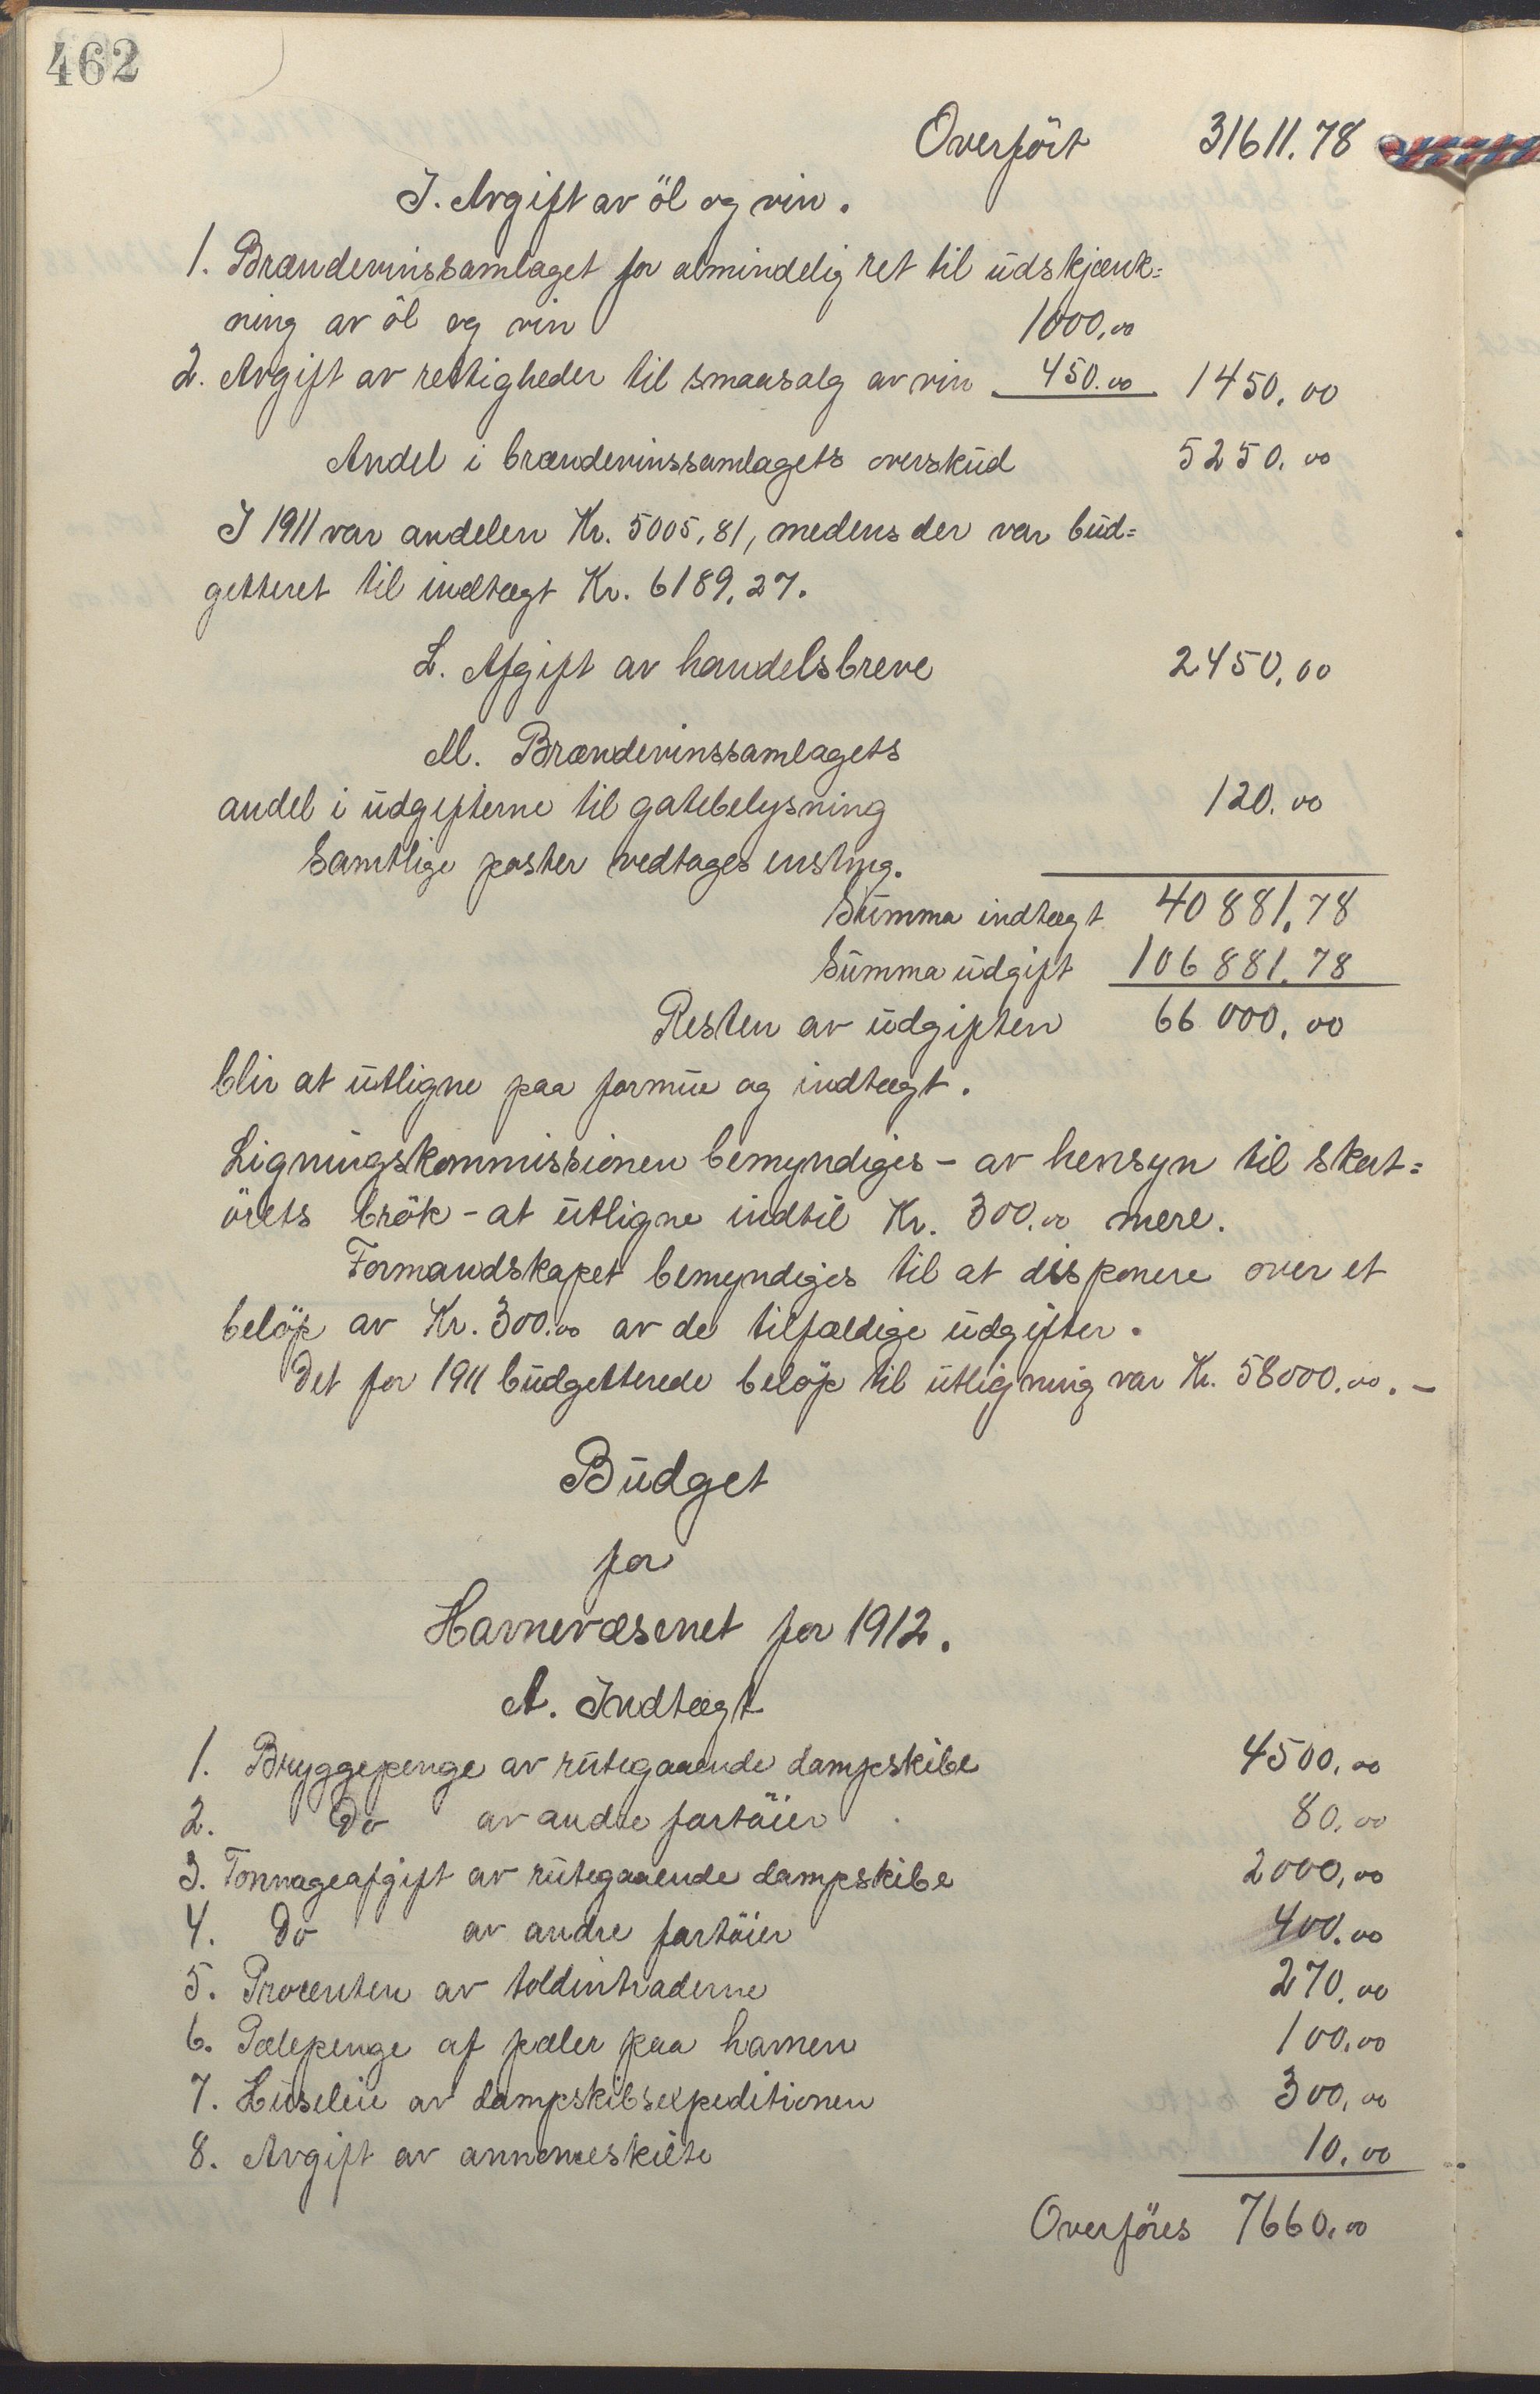 462
Overført 31611.78
J. Avgift av öl og vin.
1. Brændevinssamlaget for almindelig ret til udskjænk=
ning av öl og vin 1000.00
2. Avgift av rettigheder til smaasalg av vin 450.00 1450.00
Andel i brændevinssamlagets overskud 5250.00
I 1911 var andelen Kr. 5005,81, medens der var bud=
getteret til indtægt Kr. 6189.27.
L. Afgift av handelsbreve 2450.00
M. Brændevinssamlagets
andel i udgifterne til gatebelysning 120.00
Samtlige poster vedtages enstmg.
Summa indtægt 40881.78
Summa udgift 106881.78
Resten av udgiften 66000.00
blir at utligne paa formue og indtægt.
Ligningskommissionen bemyndiges - av hensyn til skat=
örets brök - at utligne indtil Kr. 300.00 mere.
Formandskapet bemyndiges til at disponere over et
belöp av Kr. 300.00 av de tilfældige udgifter.
Det for 1911 budgetterede belöp til utligning var Kr. 58000.00. -
Budget
for
Havnevæsenet for 1912.
A. Indtægt
1. Bryggepenge av rutegaaende dampskibe 4500.00
2. Do av andre fartöier 80.00
3. Tonnageafgift av rutegaaende dampskibe 2000.00
4. Do av andre fartöier 400.00
5. Procenten av toldintraderne 270.00
6. Pælepenge af pæler paa havnen 100.00
7. Husleie av dampskibsexpeditionen 300.00
8. Avgift av annonceskilte 10.00
Overföres 7660.00